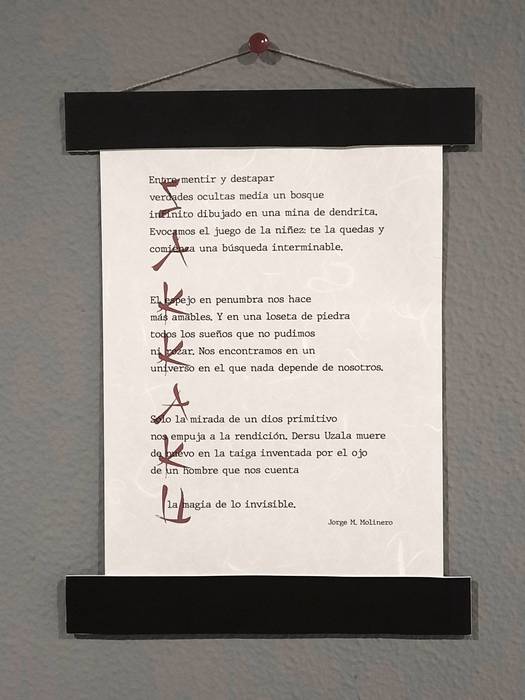 Entre mentir y destapar
verdades ocultas media un bosque
infinito dibujado en una mina de dendrita.
Evocamos el juego de la niñez: te la quedas y
comienza una búsqueda interminable.
El espejo en penumbra nos hace
más amables. Y en una loseta de piedra
todos los sueños que no pudimos
ni rozar. Nos encontramos en un
universo en el que nada depende de nosotros.
Solo la mirada de un dios primitivo
nos empuja a la rendición. Dersu Uzala muere
de nuevo en la taiga inventada por el ojo
de un hombre que nos cuenta
la magia de lo invisible.
Jorge M. Molinero